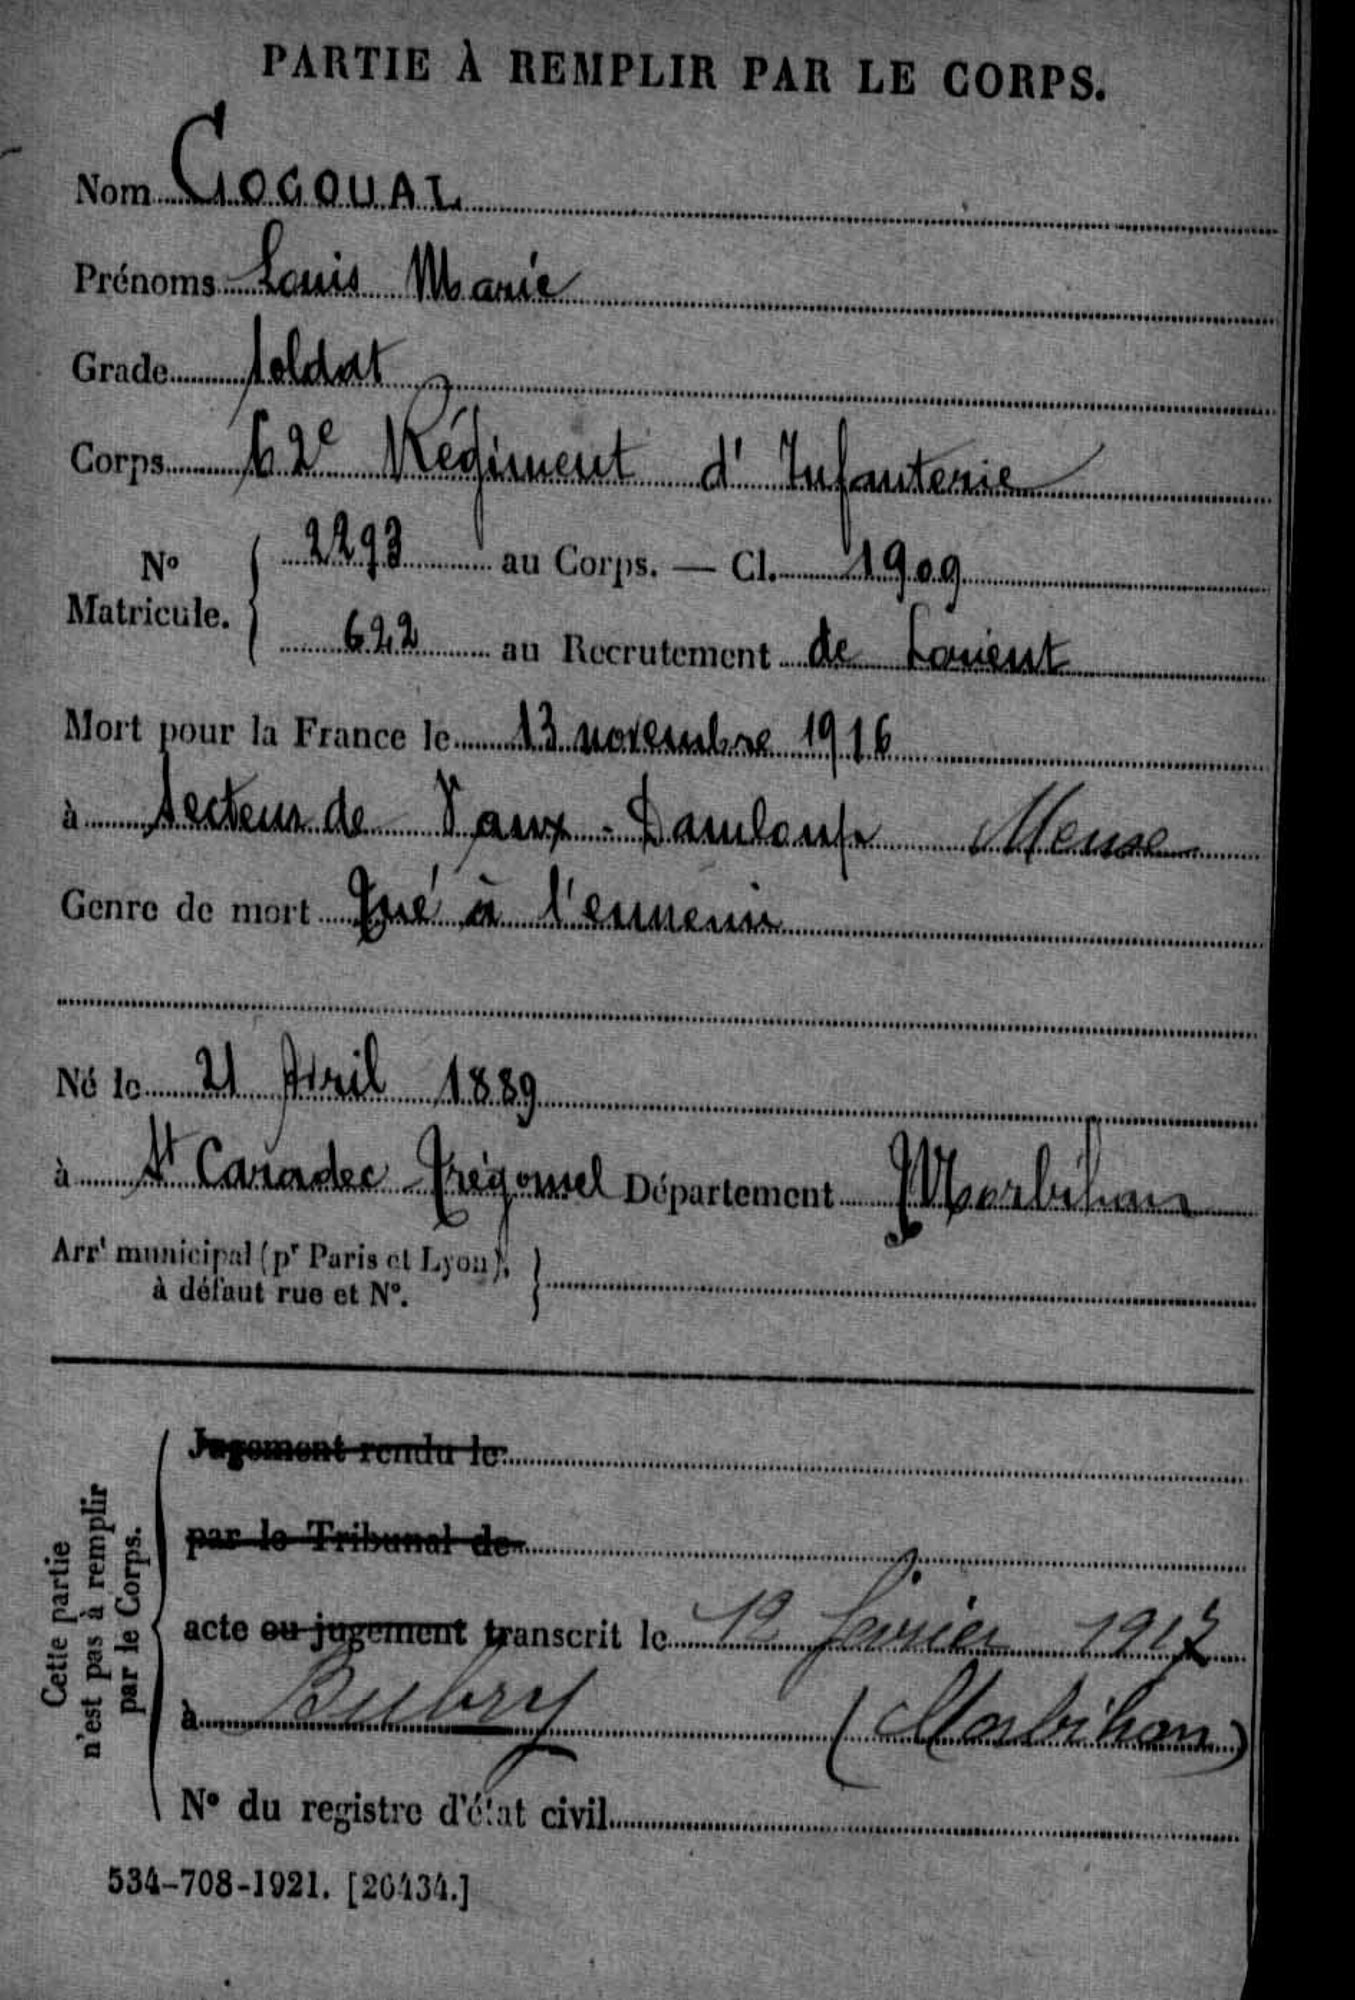 PARTIE À REMPLIR PAR LE CORPS.
Nom GOGOUAL
Prénoms Louis Marie
Grade soldat
Corps 62e Régiment d'Infanterie
No Matricule. 2293 au Corps. — Cl. 1909
622 au Recrutement de Lorient
Mort pour la France le 13 novembre 1916
à secteur de Vaux-Damloup Meuse
Genre de mort Tué à l'ennemi
Né le 21 Avril 1889
à St Caradec Trégomel Département Morbihan
Arrt municipal (pr Paris et Lyon), à défaut rue et No.
Cette partie n'est pas à remplir par le Corps.
Jugement rendu le
par le Tribunal de
acte ou jugement transcrit le 12 février 1917
à Bubry (Morbihan)
No du registre d'état civil
534-708-1921. [26434.]